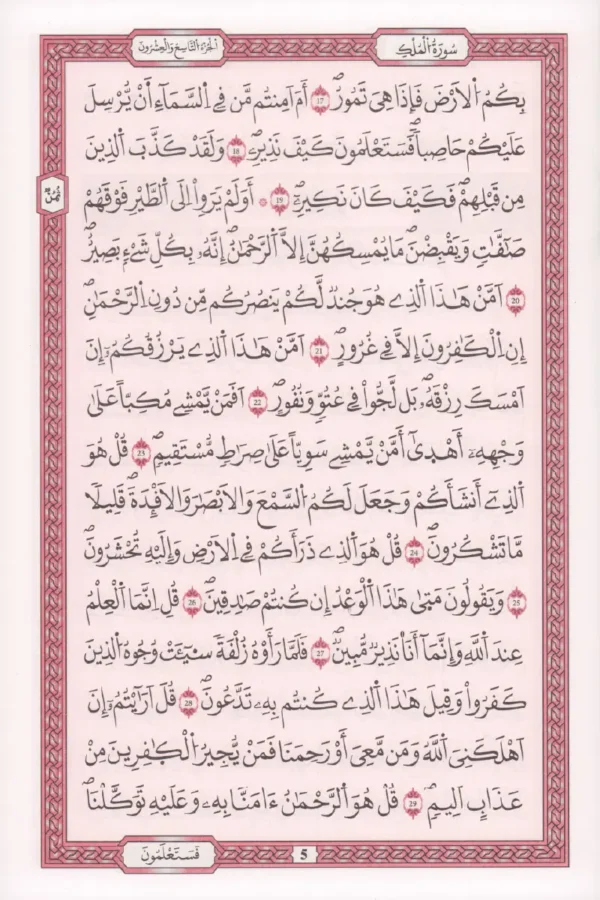 سُورَةُ الْمُلْكِ
الْجُزْءُ التَّاسِعُ وَالْعِشْرُونَ
بِكُمُ الَارْضَ فَإِذَا هِيَ تَمُورُ 17 أَمَ امِنتُم مَّن فِي السَّمَآءِ اَنْ يُّرْسِلَ
عَلَيْكُمْ حَاصِباً فَسَتَعْلَمُونَ كَيْفَ نَذِيرِ 18 وَلَقَدْ كَذَّبَ الَّذِينَ
مِن قَبْلِهِمْ فَكَيْفَ كَانَ نَكِيرِ 19 أَوَلَمْ يَرَوِاْ اِلَى الطَّيْرِ فَوْقَهُمْ
ثُمُن
صَٰٓفَّٰتٍ وَيَقْبِضْنَ مَا يُمْسِكُهُنَّ إِلاَّ الرَّحْمَٰنُ إِنَّهُۥ بِكُلِّ شَےْءٍ بَصِيرٌ
20 اَمَّنْ هَٰذَا الَّذِے هُوَ جُندٌ لَّكُمْ يَنصُرُكُم مِّن دُونِ الرَّحْمَٰنِ
إِنِ الْكَٰفِرُونَ إِلاَّ فِي غُرُورٍ 21 اَمَّنْ هَٰذَا الَّذِے يَرْزُقُكُمُۥٓ إِنَ
اَمْسَكَ رِزْقَهُۥ بَل لَّجُّواْ فِي عُتُوٍّ وَنُفُورٍ 22 اَفَمَنْ يَّمْشِے مُكِبّاً عَلَىٰ
وَجْهِهِۦٓ أَهْدَىٰٓ أَمَّنْ يَّمْشِے سَوِيّاً عَلَىٰ صِرَٰطٍ مُّسْتَقِيمٍ 23 قُلْ هُوَ
الَّذِےٓ أَنشَأَكُمْ وَجَعَلَ لَكُمُ السَّمْعَ وَالَابْصَٰرَ وَالَافْـِٕدَةَ قَلِيلًا
مَّا تَشْكُرُونَ 24 قُلْ هُوَ الَّذِے ذَرَأَكُمْ فِي الَارْضِ وَإِلَيْهِ تُحْشَرُونَ
25 وَيَقُولُونَ مَتَىٰ هَٰذَا الْوَعْدُ إِن كُنتُمْ صَٰدِقِينَ 26 قُلِ اِنَّمَا الْعِلْمُ
عِندَ اللَّهِ وَإِنَّمَآ أَنَا نَذِيرٌ مُّبِينٌ 27 فَلَمَّا رَأَوْهُ زُلْفَةً سِيٓـَٔتْ وُجُوهُ الَّذِينَ
كَفَرُواْ وَقِيلَ هَٰذَا الَّذِے كُنتُم بِهِۦ تَدَّعُونَ 28 قُلَ اَرَٰٓيْتُمُۥٓ إِنَ
اَهْلَكَنِيَ اللَّهُ وَمَن مَّعِيَ أَوْ رَحِمَنَا فَمَنْ يُّجِيرُ الْكَٰفِرِينَ مِنْ
عَذَابٍ اَلِيمٍ 29 قُلْ هُوَ الرَّحْمَٰنُ ءَامَنَّا بِهِۦ وَعَلَيْهِ تَوَكَّلْنَا
فَسَتَعْلَمُونَ
5